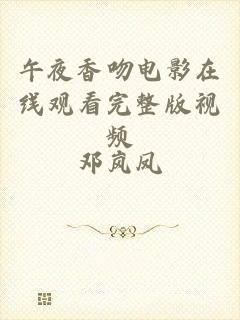 午夜香吻电影在
线观看完整版视
频
邓岚凤